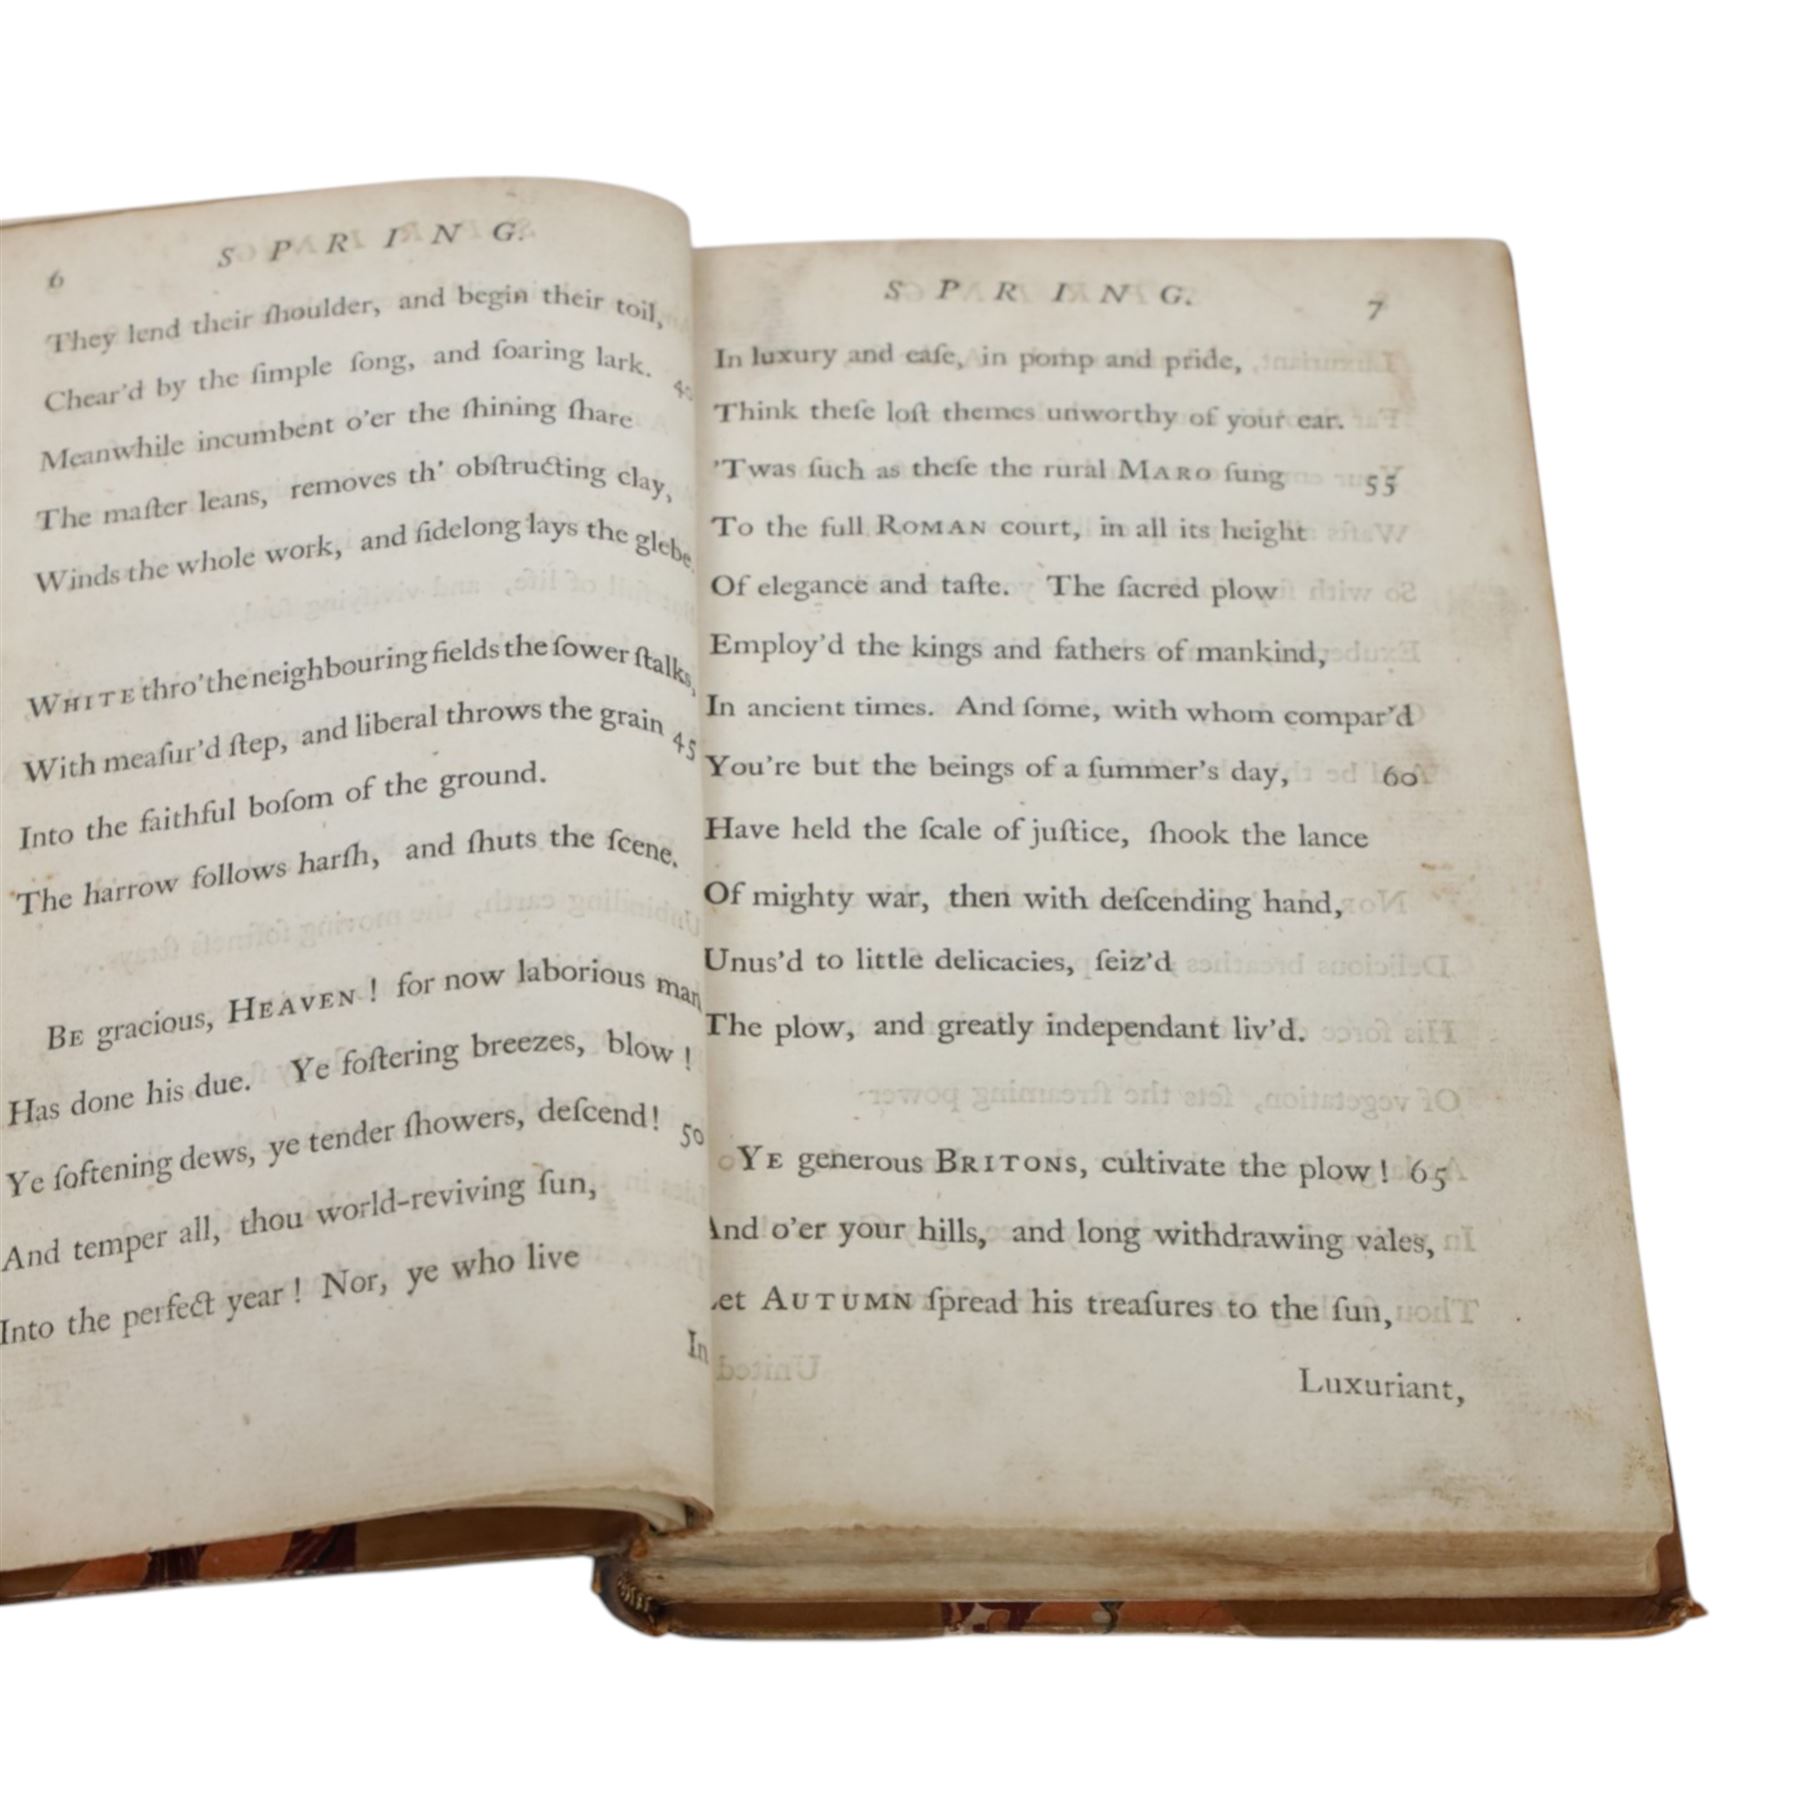 6 SPRING.
They lend their ſhoulder, and begin their toil,
Chear'd by the ſimple ſong, and ſoaring lark. 40
Meanwhile incumbent o'er the ſhining ſhare
The maſter leans, removes th' obſtructing clay,
Winds the whole work, and ſidelong lays the glebe.
WHITE thro' the neighbouring fields the ſower ſtalks,
With meaſur'd ſtep, and liberal throws the grain 45
Into the faithful boſom of the ground.
The harrow follows harſh, and ſhuts the ſcene.
BE gracious, HEAVEN! for now laborious man
Has done his due. Ye foſtering breezes, blow!
Ye ſoftening dews, ye tender ſhowers, deſcend! 50
And temper all, thou world-reviving ſun,
Into the perfect year! Nor, ye who live
In
SPRING. 7
In luxury and eaſe, in pomp and pride,
Think theſe loſt themes unworthy of your ear.
'Twas ſuch as theſe the rural MARO ſung 55
To the full ROMAN court, in all its height
Of elegance and taſte. The ſacred plow
Employ'd the kings and fathers of mankind,
In ancient times. And ſome, with whom compar'd
You're but the beings of a ſummer's day, 60
Have held the ſcale of juſtice, ſhook the lance
Of mighty war, then with deſcending hand,
Unus'd to little delicacies, ſeiz'd
The plow, and greatly independant liv'd.
YE generous BRITONS, cultivate the plow! 65
And o'er your hills, and long withdrawing vales,
Let AUTUMN ſpread his treaſures to the ſun,
Luxuriant,